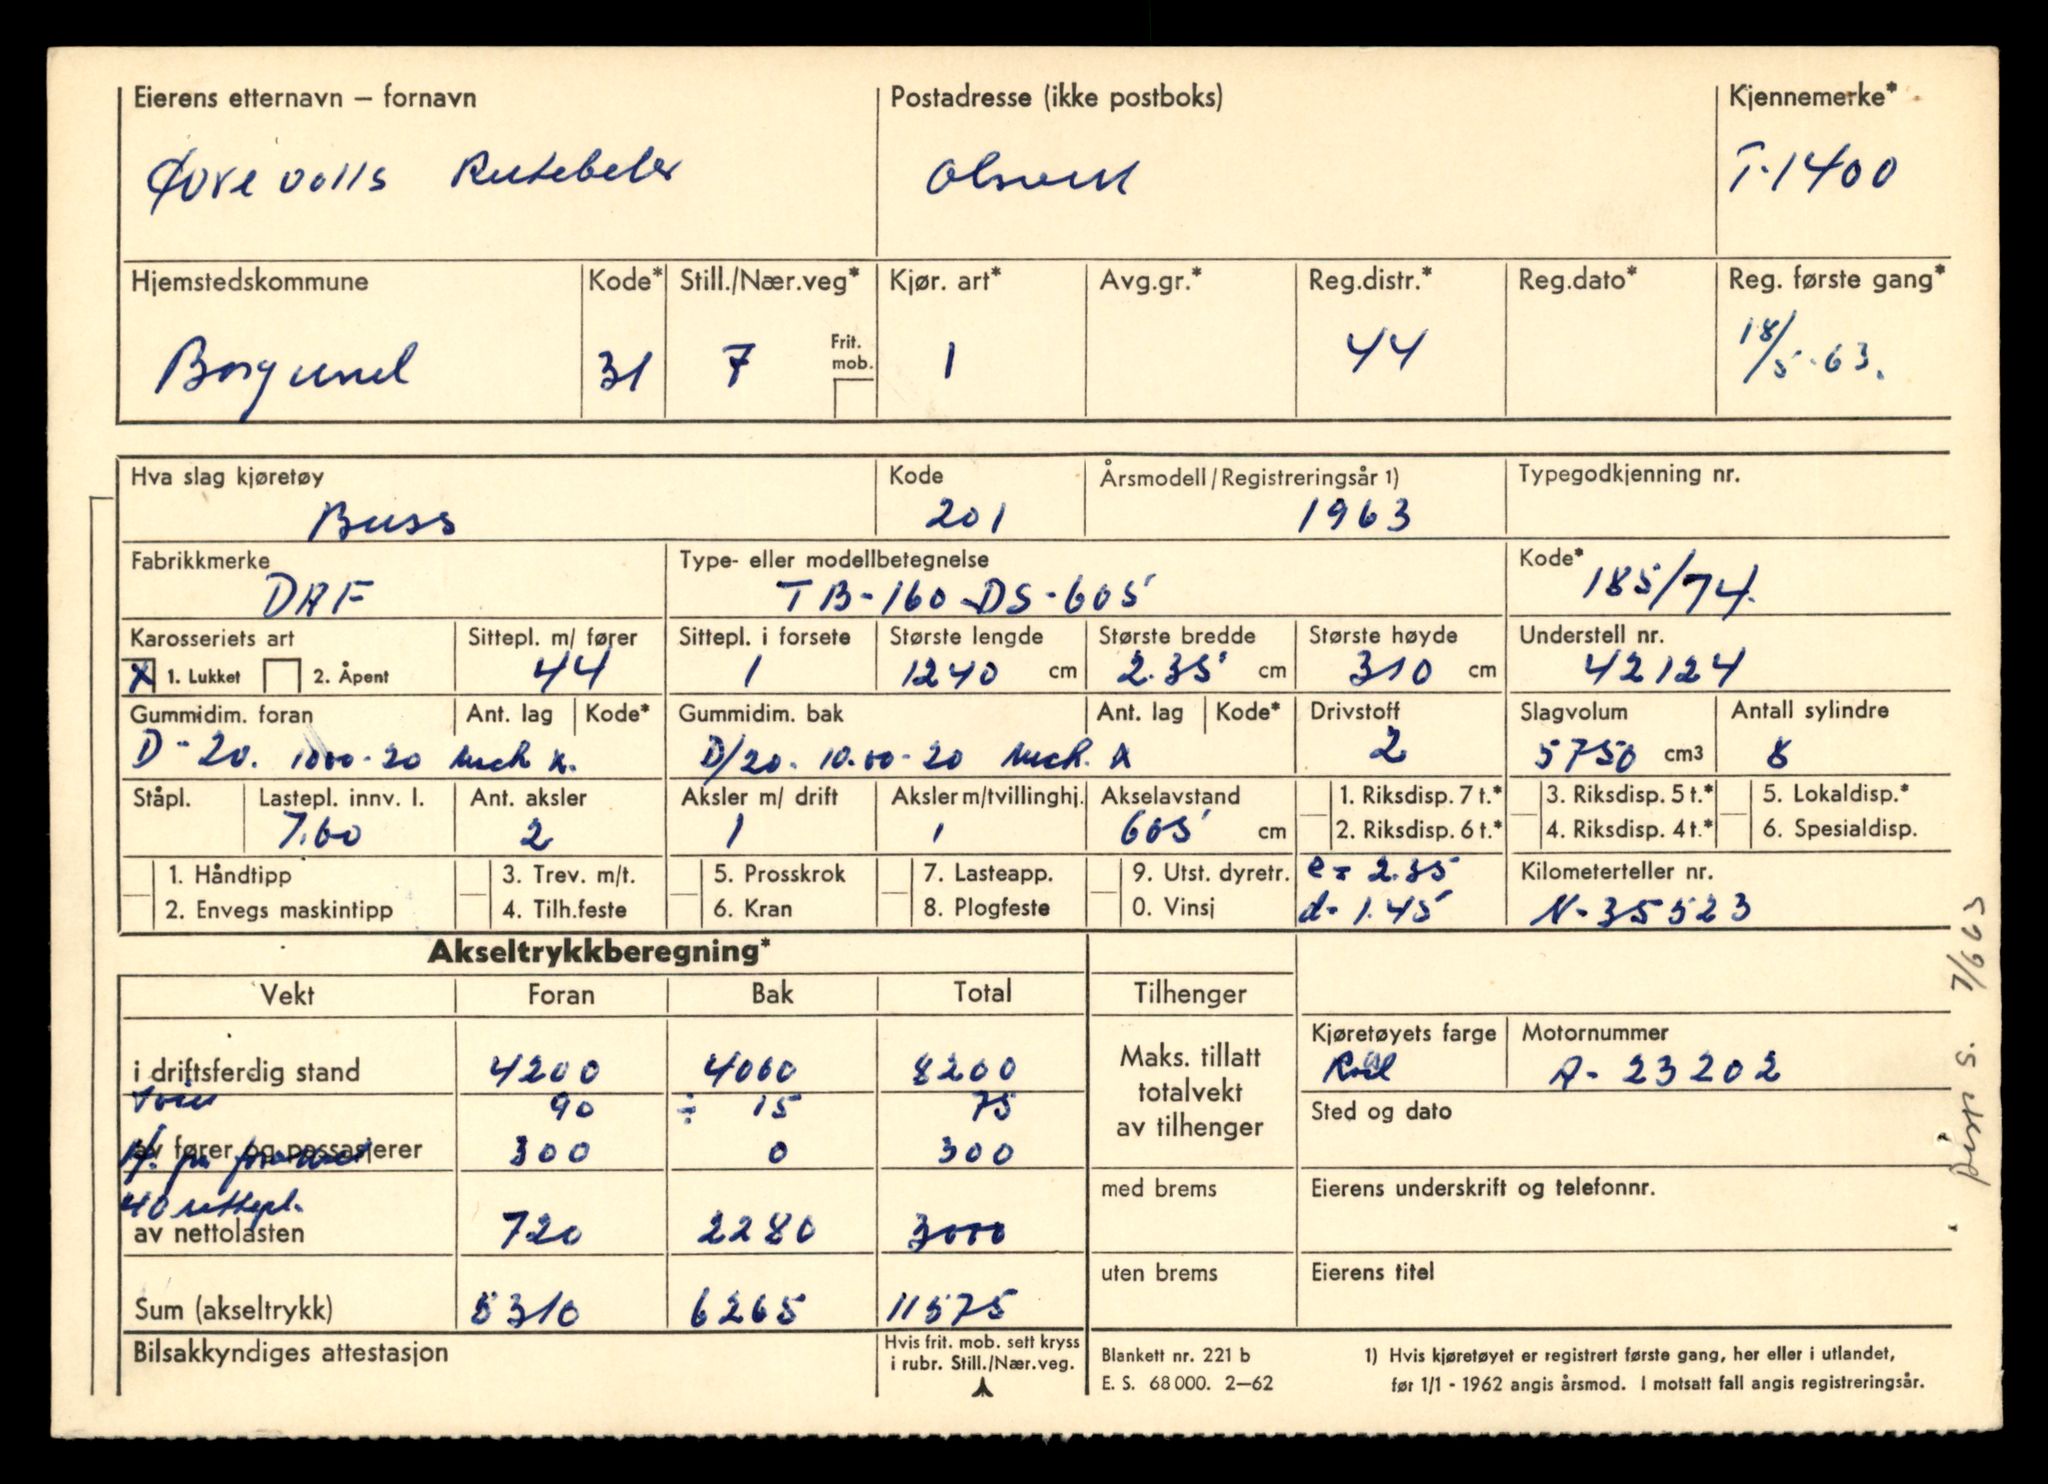 Eierens etternavn – fornavn
Postadresse (ikke postboks)
Kjennemerke*
Ørevolls Rutebeler
T-1400
Hjemstedskommune
Kode*
Still./Nær.veg*
Kjør. art*
Avg.gr.*
Reg.distr.*
Reg.dato*
Reg. første gang*
Borgund
31
7
Frit. mob.
1
44
18/5-63.
Hva slag kjøretøy
Kode
Årsmodell/Registreringsår 1)
Typegodkjenning nr.
Buss
201
1963
Fabrikkmerke
Type- eller modellbetegnelse
Kode*
DAF
TB-160-DS-605
185/74.
Karosseriets art
Sittepl. m/ fører
Sittepl. i forsete
Største lengde
Største bredde
Største høyde
Understell nr.
X 1. Lukket
2. Åpent
44
1
1240 cm
2.35 cm
310 cm
42124
Gummidim. foran
Ant. lag
Kode*
Gummidim. bak
Ant. lag
Kode*
Drivstoff
Slagvolum
Antall sylindre
D-20. 1000-20 Mich X.
D/20. 10.00-20 Mich. X
2
5750 cm3
6
Ståpl.
Lastepl. innv. l.
Ant. aksler
Aksler m/ drift
Aksler m/tvillinghj.
Akselavstand
1. Riksdisp. 7 t.*
3. Riksdisp. 5 t.*
5. Lokaldisp.*
7.60
2
1
1
605 cm
2. Riksdisp. 6 t.*
4. Riksdisp. 4 t.*
6. Spesialdisp.
1. Håndtipp
3. Trev. m/t.
5. Prosskrok
7. Lasteapp.
9. Utst. dyretr.
e = 2.35
Kilometerteller nr.
2. Envegs maskintipp
4. Tilh.feste
6. Kran
8. Plogfeste
0. Vinsj
d- 1.45
N-35523
Akseltrykkberegning*
Vekt
Foran
Bak
Total
Tilhenger
i driftsferdig stand
4200
4000
8200
Maks. tillatt
totalvekt
av tilhenger
Kjøretøyets farge
Motornummer
Rød
A-23202
90
÷ 15
75
Sted og dato
av fører og passasjerer
300
0
300
med brems
Eierens underskrift og telefonnr.
40 sittepl.
av nettolasten
720
2280
3000
uten brems
Eierens titel
Sum (akseltrykk)
5310
6265
11575
Bilsakkyndiges attestasjon
Hvis frit. mob. sett kryss
i rubr. Still./Nær.veg.
Blankett nr. 221 b
E. S. 68 000. 2–62
1) Hvis kjøretøyet er registrert første gang, her eller i utlandet,
før 1/1 - 1962 angis årsmod. I motsatt fall angis registreringsår.
S. 7/6 63